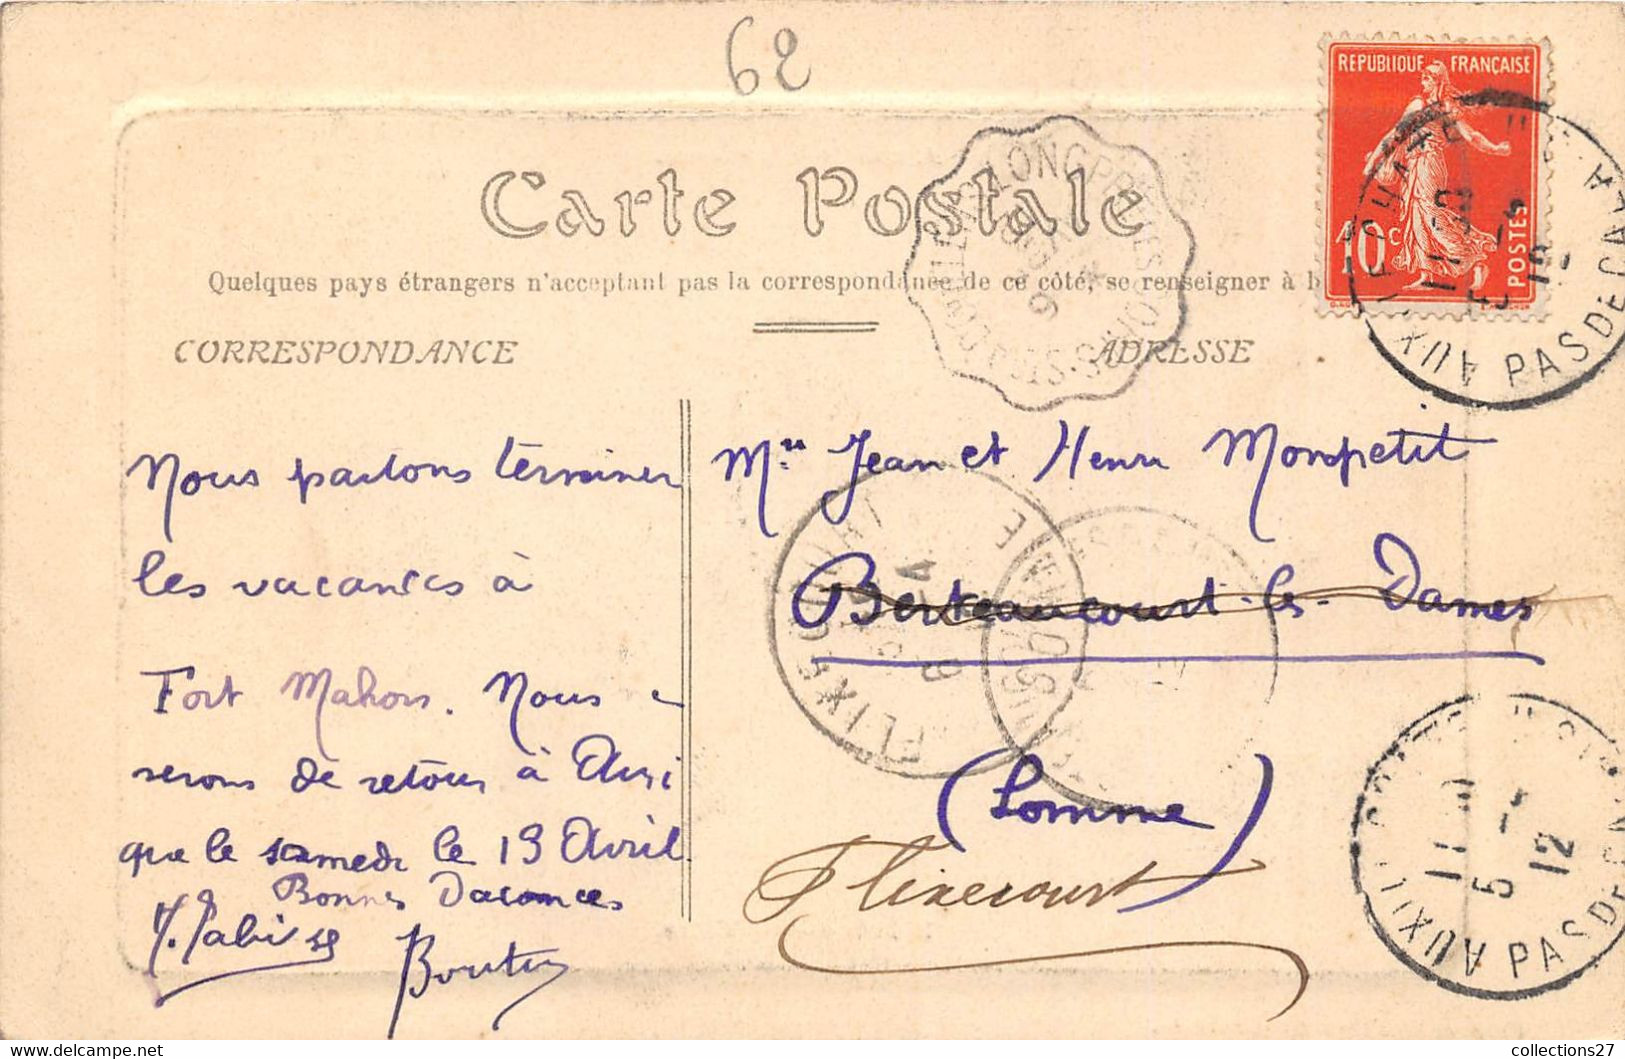 62
REPUBLIQUE FRANÇAISE
10c
POSTES
Carte Postale
Quelques pays étrangers n'acceptant pas la correspondance de ce côté, se renseigner à
CORRESPONDANCE
ADRESSE
LONGPRÉ
AUXI
PAS DE CALA
Nous partons terminer
les vacances à
Fort Mahon. Nous
serons de retour à Auxi
que le samedi le 13 Avril
Bonnes Vacances
Mrs Jean et Henri Monpetit
Berteaucourt-les-Dames
(Somme)
Flixecourt
FLIXECOURT
SOMME
AUXI
PAS DE CA
11
5 - 4
12
collections27